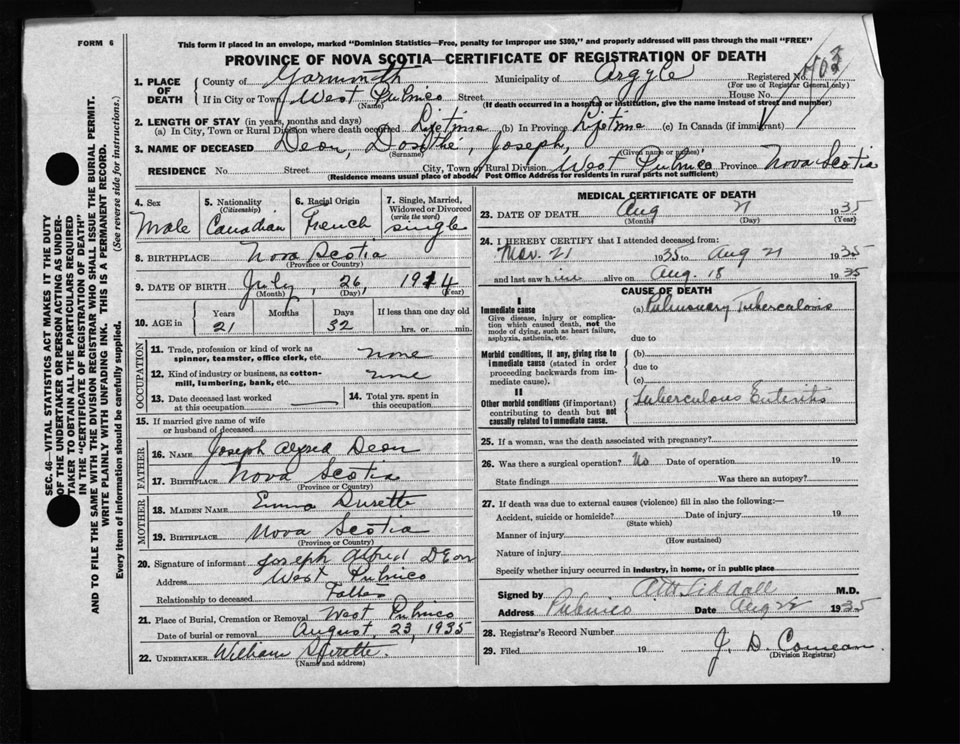 FORM 6
This form if placed in an envelope, marked "Dominion Statistics—Free, penalty for improper use $300," and properly addressed will pass through the mail "FREE"
PROVINCE OF NOVA SCOTIA—CERTIFICATE OF REGISTRATION OF DEATH
1. PLACE OF DEATH
County of Yarmouth Municipality of Argyle Registered No.
(For use of Registrar General only)
If in City or Town West Pubnico Street House No.
(Name) (If death occurred in a hospital or institution, give the name instead of street and number)
2. LENGTH OF STAY (in years, months and days)
(a) In City, Town or Rural Division where death occurred Lifetime (b) In Province Lifetime (c) In Canada (if immigrant)
3. NAME OF DECEASED Deon, Dosithe, Joseph,
(Surname) (Given name or names)
RESIDENCE No. Street City, Town or Rural Division West Pubnico Province Nova Scotia
(Residence means usual place of abode. Post Office Address for residents in rural parts not sufficient)
SEC. 46—VITAL STATISTICS ACT MAKES IT THE DUTY
OF THE UNDERTAKER OR PERSON ACTING AS UNDER-
TAKER TO OBTAIN ALL THE PARTICULARS REQUIRED
IN THE "CERTIFICATE OF REGISTRATION OF DEATH"
AND TO FILE THE SAME WITH THE DIVISION REGISTRAR WHO SHALL ISSUE THE BURIAL PERMIT.
WRITE PLAINLY WITH UNFADING INK. THIS IS A PERMANENT RECORD.
Every item of information should be carefully supplied. (See reverse side for instructions.)
4. Sex
Male
5. Nationality
(Citizenship)
Canadian
6. Racial Origin
French
7. Single, Married,
Widowed or Divorced
(write the word)
single
8. BIRTHPLACE Nova Scotia
(Province or Country)
9. DATE OF BIRTH July, 26, 1914
(Month) (Day) (Year)
10. AGE in
Years Months Days If less than one day old
21 32 hrs. or min.
OCCUPATION
11. Trade, profession or kind of work as
spinner, teamster, office clerk, etc. none
12. Kind of industry or business, as cotton-
mill, lumbering, bank, etc. none
13. Date deceased last worked
at this occupation
14. Total yrs. spent in
this occupation
15. If married give name of wife
or husband of deceased
FATHER
16. NAME Joseph Alfred Deon
17. BIRTHPLACE Nova Scotia
(Province or Country)
MOTHER
18. MAIDEN NAME Emma
19. BIRTHPLACE Nova Scotia
(Province or Country)
20. Signature of informant Joseph Alfred DEon
Address West Pubnico
Relationship to deceased Father
21. Place of Burial, Cremation or Removal West Pubnico
Date of burial or removal August, 23, 1935
22. UNDERTAKER William
(Name and address)
MEDICAL CERTIFICATE OF DEATH
23. DATE OF DEATH Aug 21 1935
(Month) (Day) (Year)
24. I HEREBY CERTIFY that I attended deceased from:
Nov. 21 1935 to Aug 21 1935
and last saw him alive on Aug. 18 1935
CAUSE OF DEATH
I
Immediate cause
Give disease, injury or complica-
tion which caused death, not the
mode of dying, such as heart failure,
asphyxia, asthenia, etc.
(a) Pulmonary Tuberculosis
due to
Morbid conditions, if any, giving rise to
immediate cause (stated in order
proceeding backwards from im-
mediate cause).
(b)
due to
(c)
II
Other morbid conditions (if important)
contributing to death but not
causally related to immediate cause.
Tuberculous Enteritis
25. If a woman, was the death associated with pregnancy?
26. Was there a surgical operation? No Date of operation 19
State findings Was there an autopsy?
27. If death was due to external causes (violence) fill in also the following:—
Accident, suicide or homicide? Date of injury 19
(State which)
Manner of injury
(How sustained)
Nature of injury
Specify whether injury occurred in industry, in home, or in public place
Signed by Siddall M.D.
Address Pubnico Date Aug 22 1935
28. Registrar's Record Number
29. Filed 19 J. D. Comeau.
(Division Registrar)